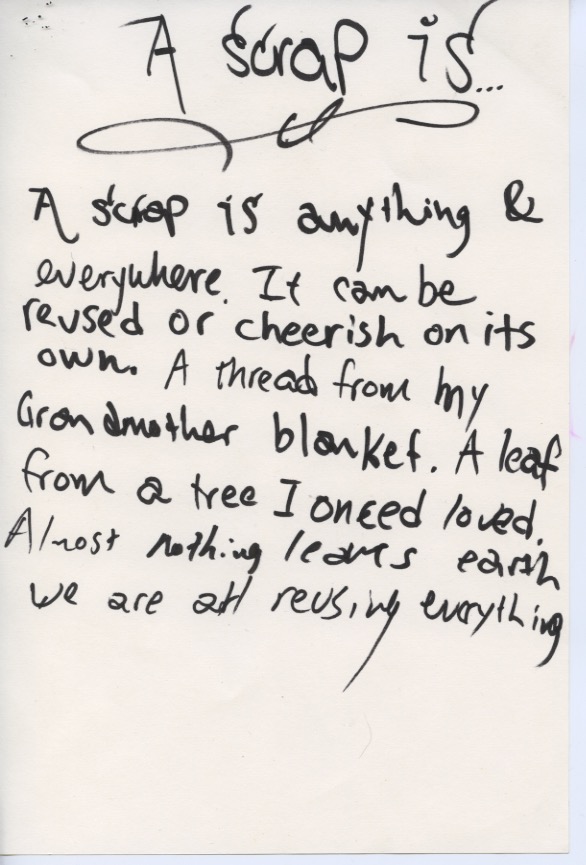 A scrap is...
A scrap is anything &
everywhere. It can be
reused or cheerish on its
own. A thread from my
Grandmother blanket. A leaf
from a tree I onced loved.
Almost nothing leaves earth
we are all reusing everything